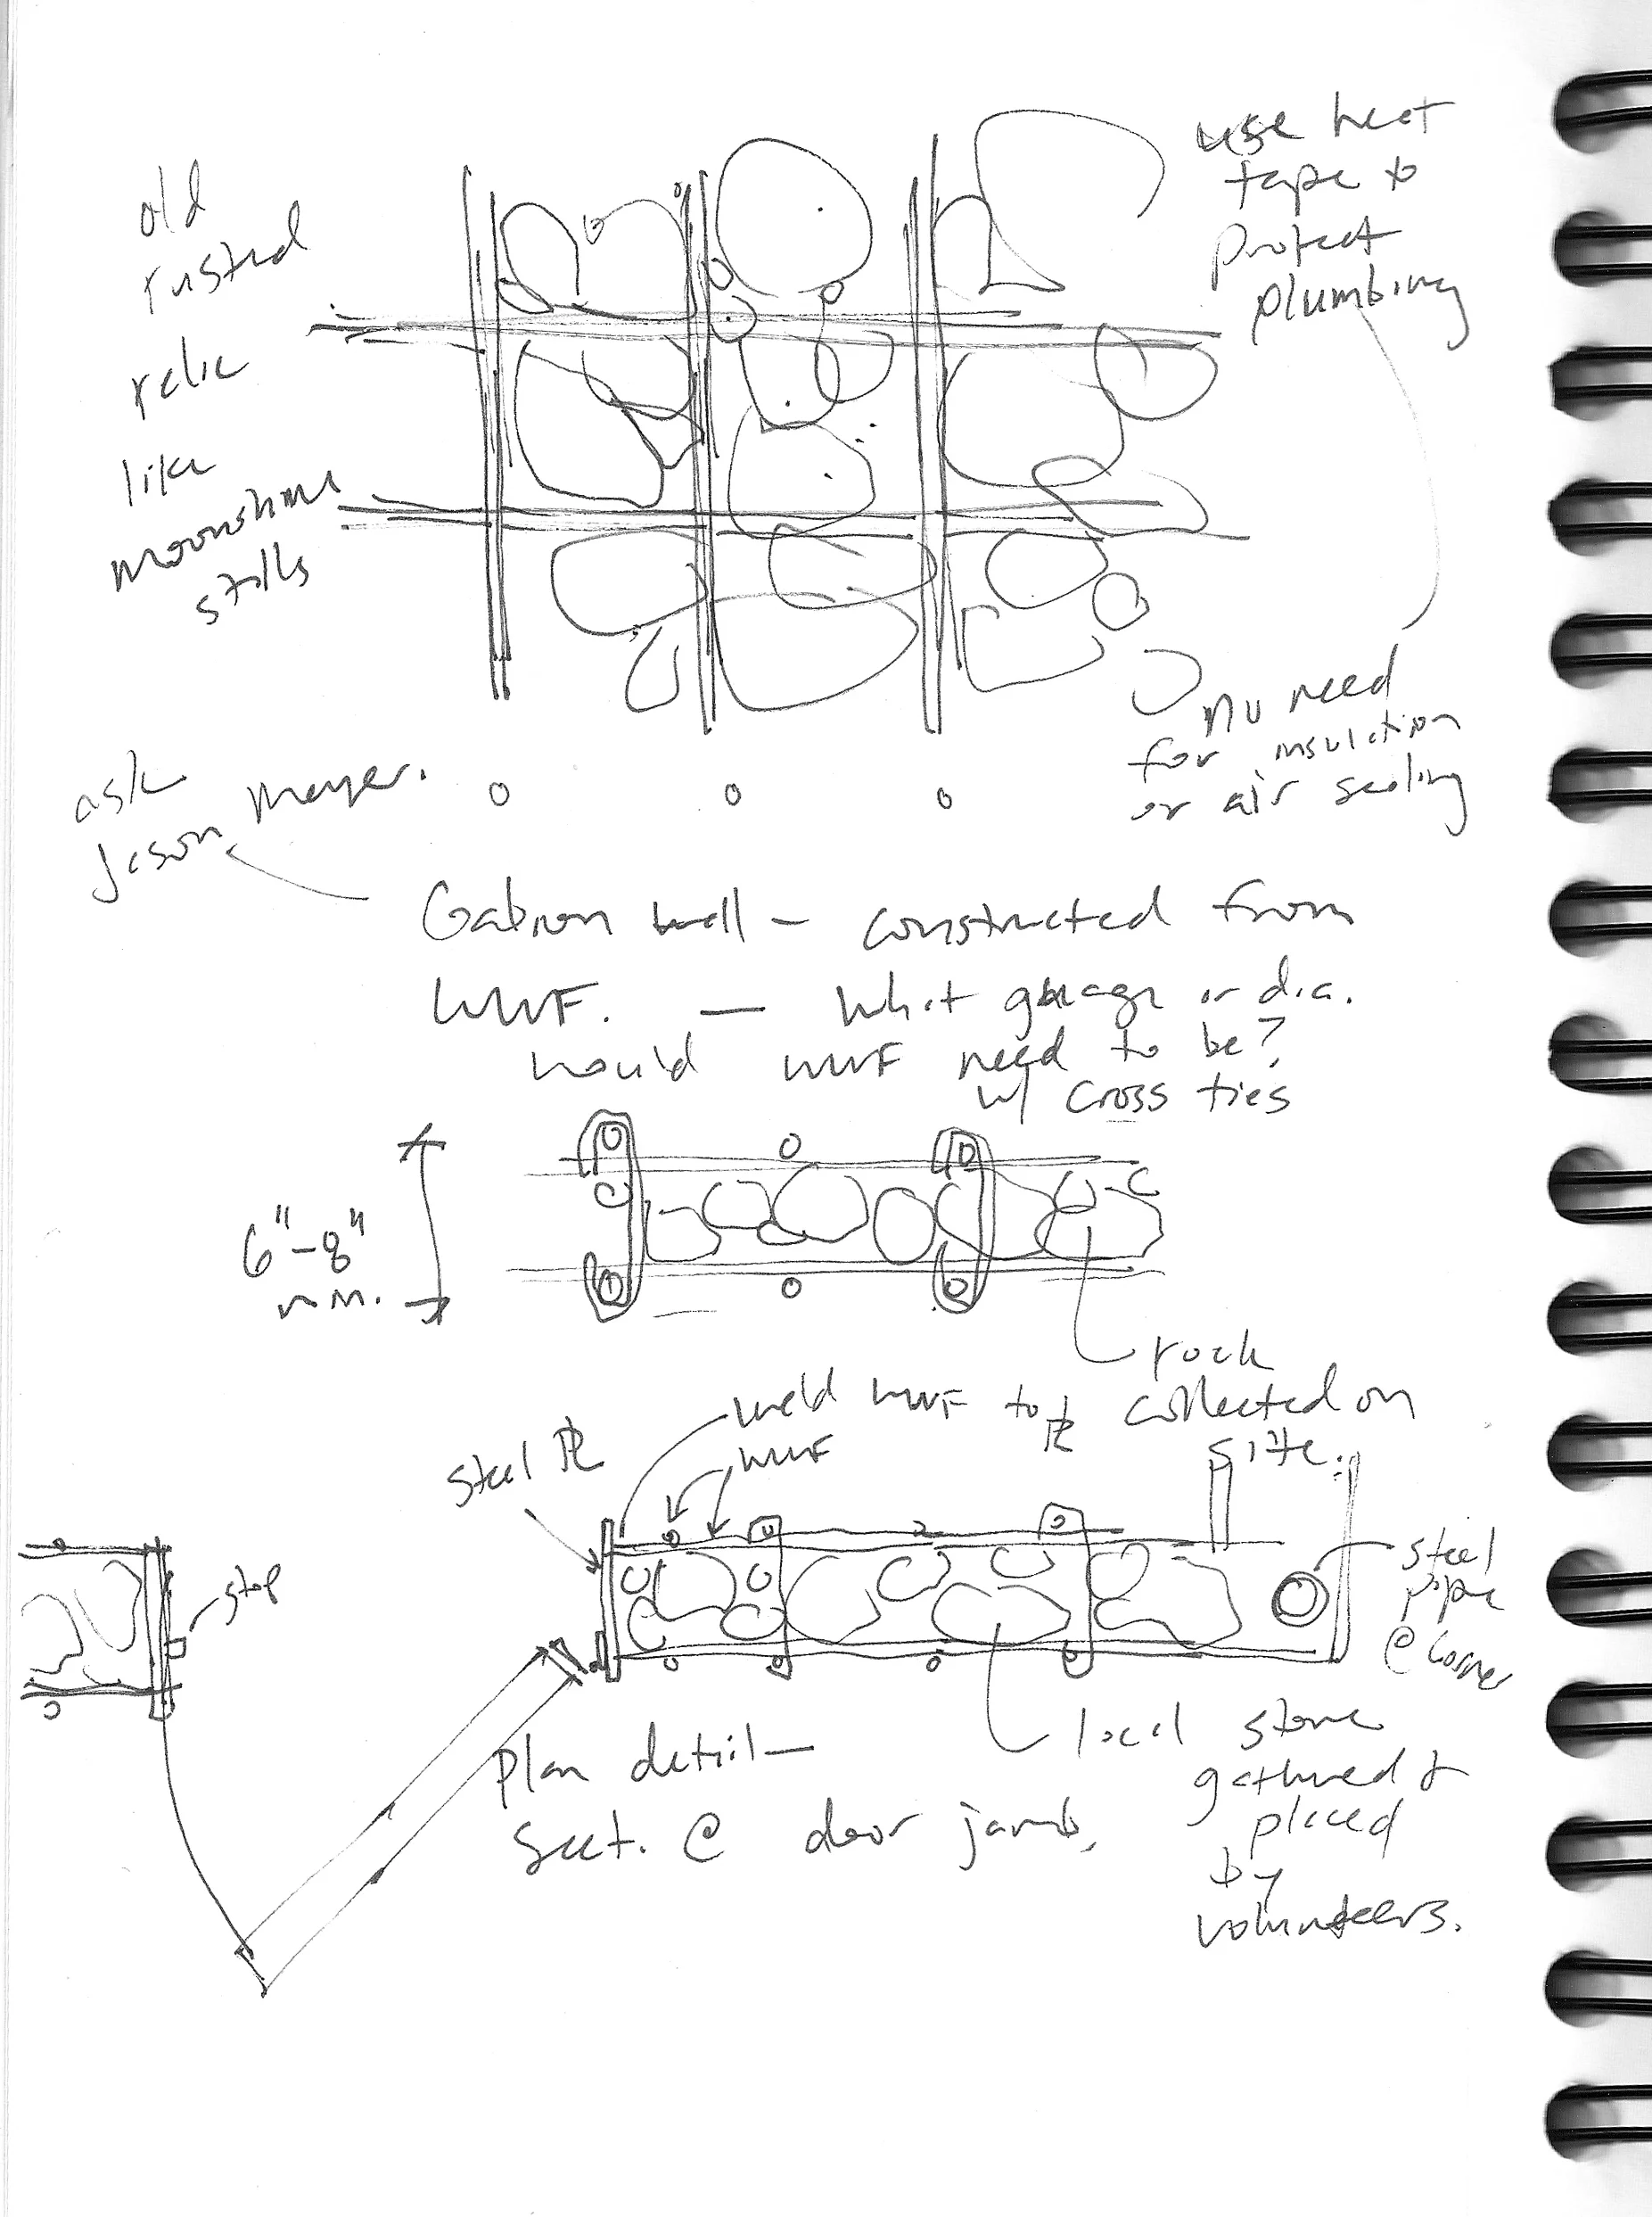 old
rusted
relic
like
moonshine
stills
use heat
tape to
protect
plumbing
no need
for insulation
or air sealing
ask
Jason Mayer.
Gabion wall - constructed from
WWF. — What guage or dia.
would WWF need to be?
w/ cross ties
6"-8"
min.
rock
collected on
site.
weld WWF to PL
WWF
steel PL
stop
steel
pipe
@ corner
Plan detail —
Sect. @ door jamb.
local stone
gathered &
placed
by
volunteers.